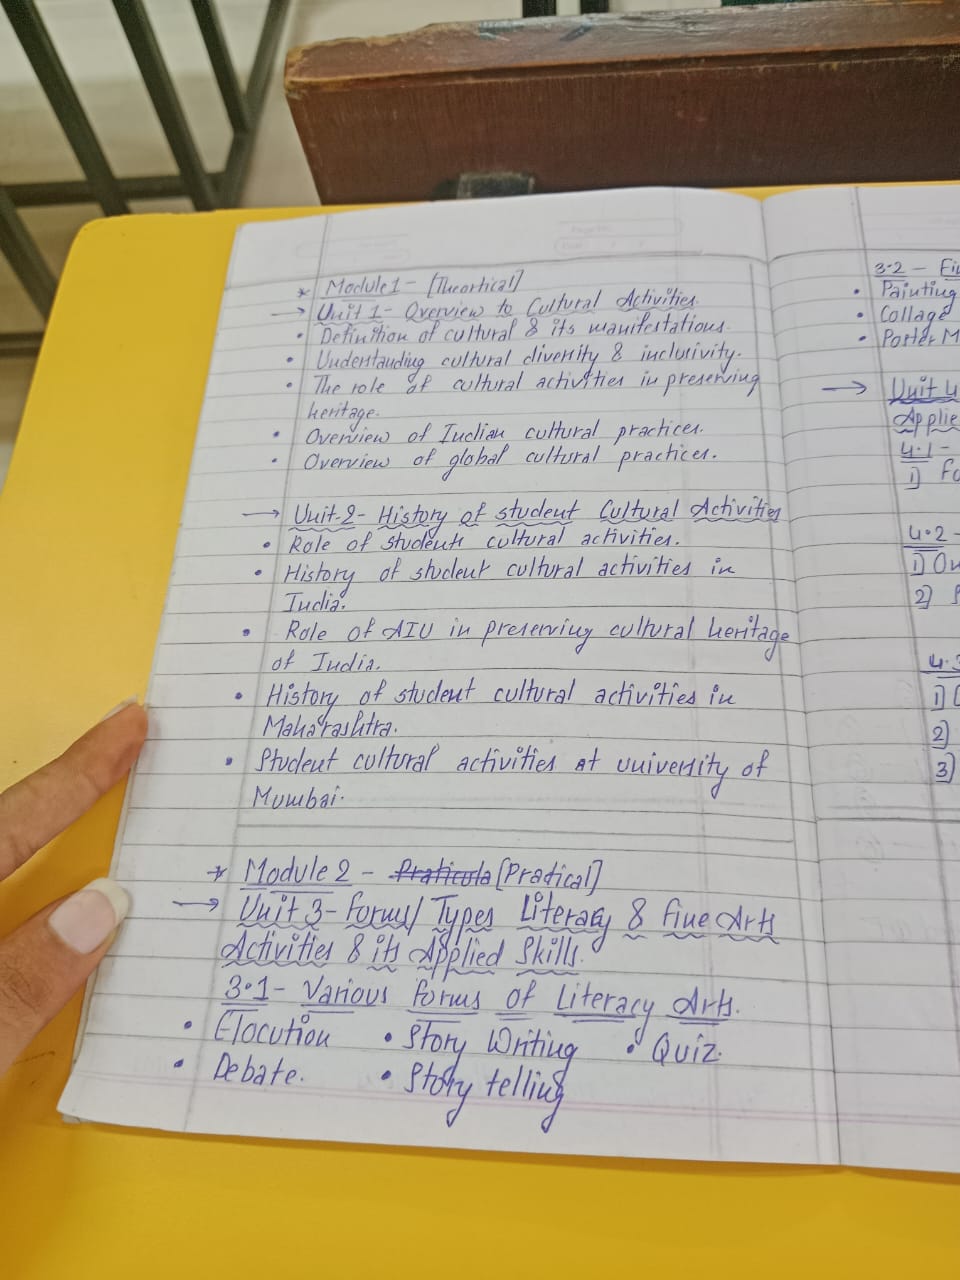 * Module 1 - [Theortical]
→ Unit 1 - Overview to Cultural Activities.
• Definition of cultural & its manifestations.
• Understanding cultural diversity & inclusivity.
• The role of cultural activities in preserving
heritage.
• Overview of Indian cultural practices.
• Overview of global cultural practices.
→ Unit-2- History of student Cultural Activities
• Role of students cultural activities.
• History of student cultural activities in
India.
• Role of AIU in preserving cultural heritage
of India.
• History of student cultural activities in
Maharashtra.
• Student cultural activities at university of
Mumbai.
* Module 2 - [Pratical]
→ Unit 3- Forms/ Types Literary & Fine Arts
Activities & its Applied Skills.
3.1- Various forms of Literacy Arts.
• Elocution • Story Writing • Quiz.
• Debate. • Story telling
3.2 -
• Painting
• Collage
• Poster M
→ Unit 4
Applie
4.1 -
1)
4.2 -
1)
2)
4.3
1)
2)
3)